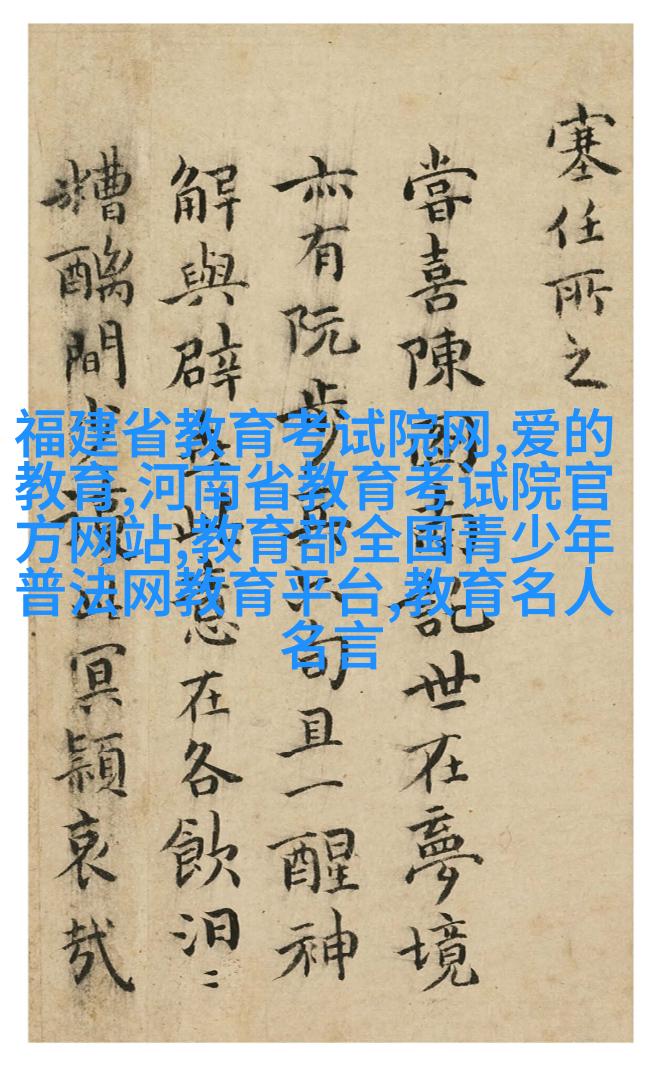 塞任所之
嘗喜陳南記世在夢境
亦有阮步兵句且一醒神
解與辟此意在各飲汩〻
糟醨間少冥穎哀哉
福建省教育考试院网,爱的
教育,河南省教育考试院官
方网站,教育部全国青少年
普法网教育平台,教育名人
名言